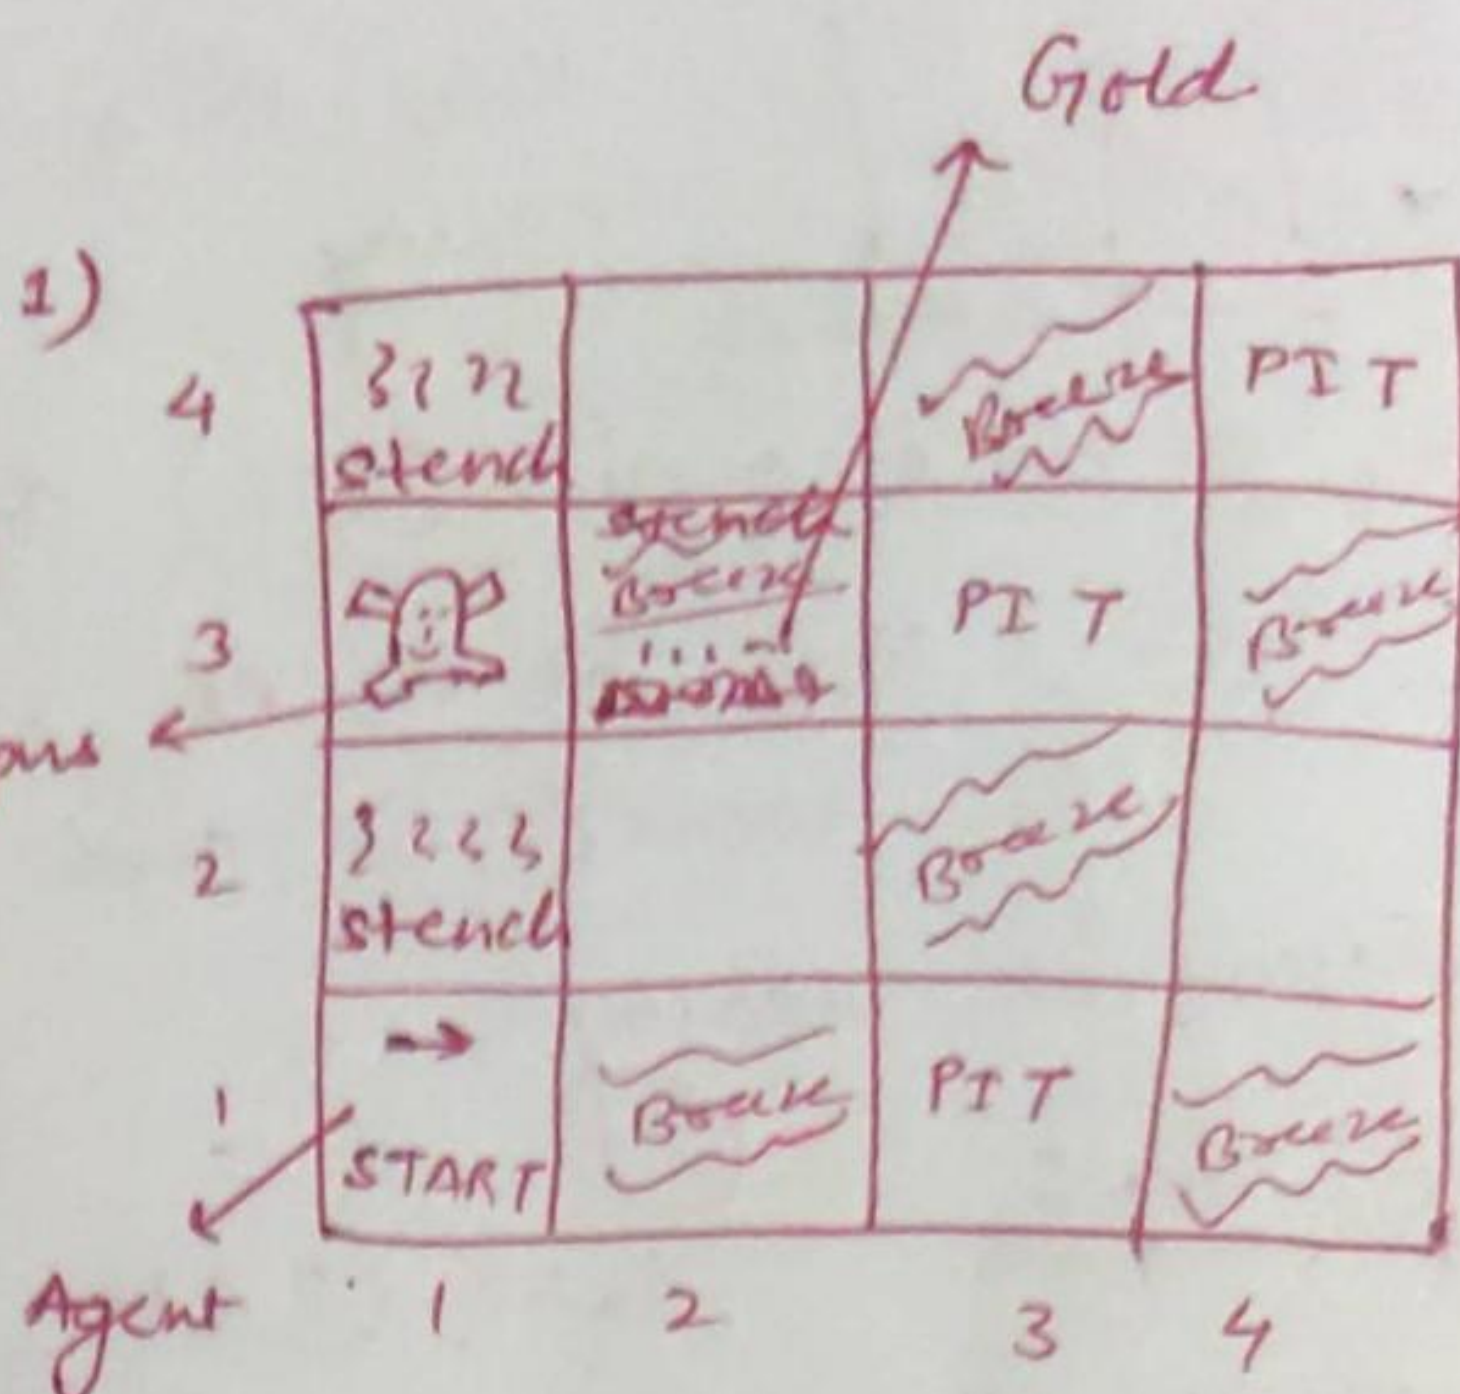 Gold
1)
4 stench Breeze PIT
3 Stench Breeze PIT Breeze
2 stench Breeze
1 START Breeze PIT Breeze
Agent 1 2 3 4